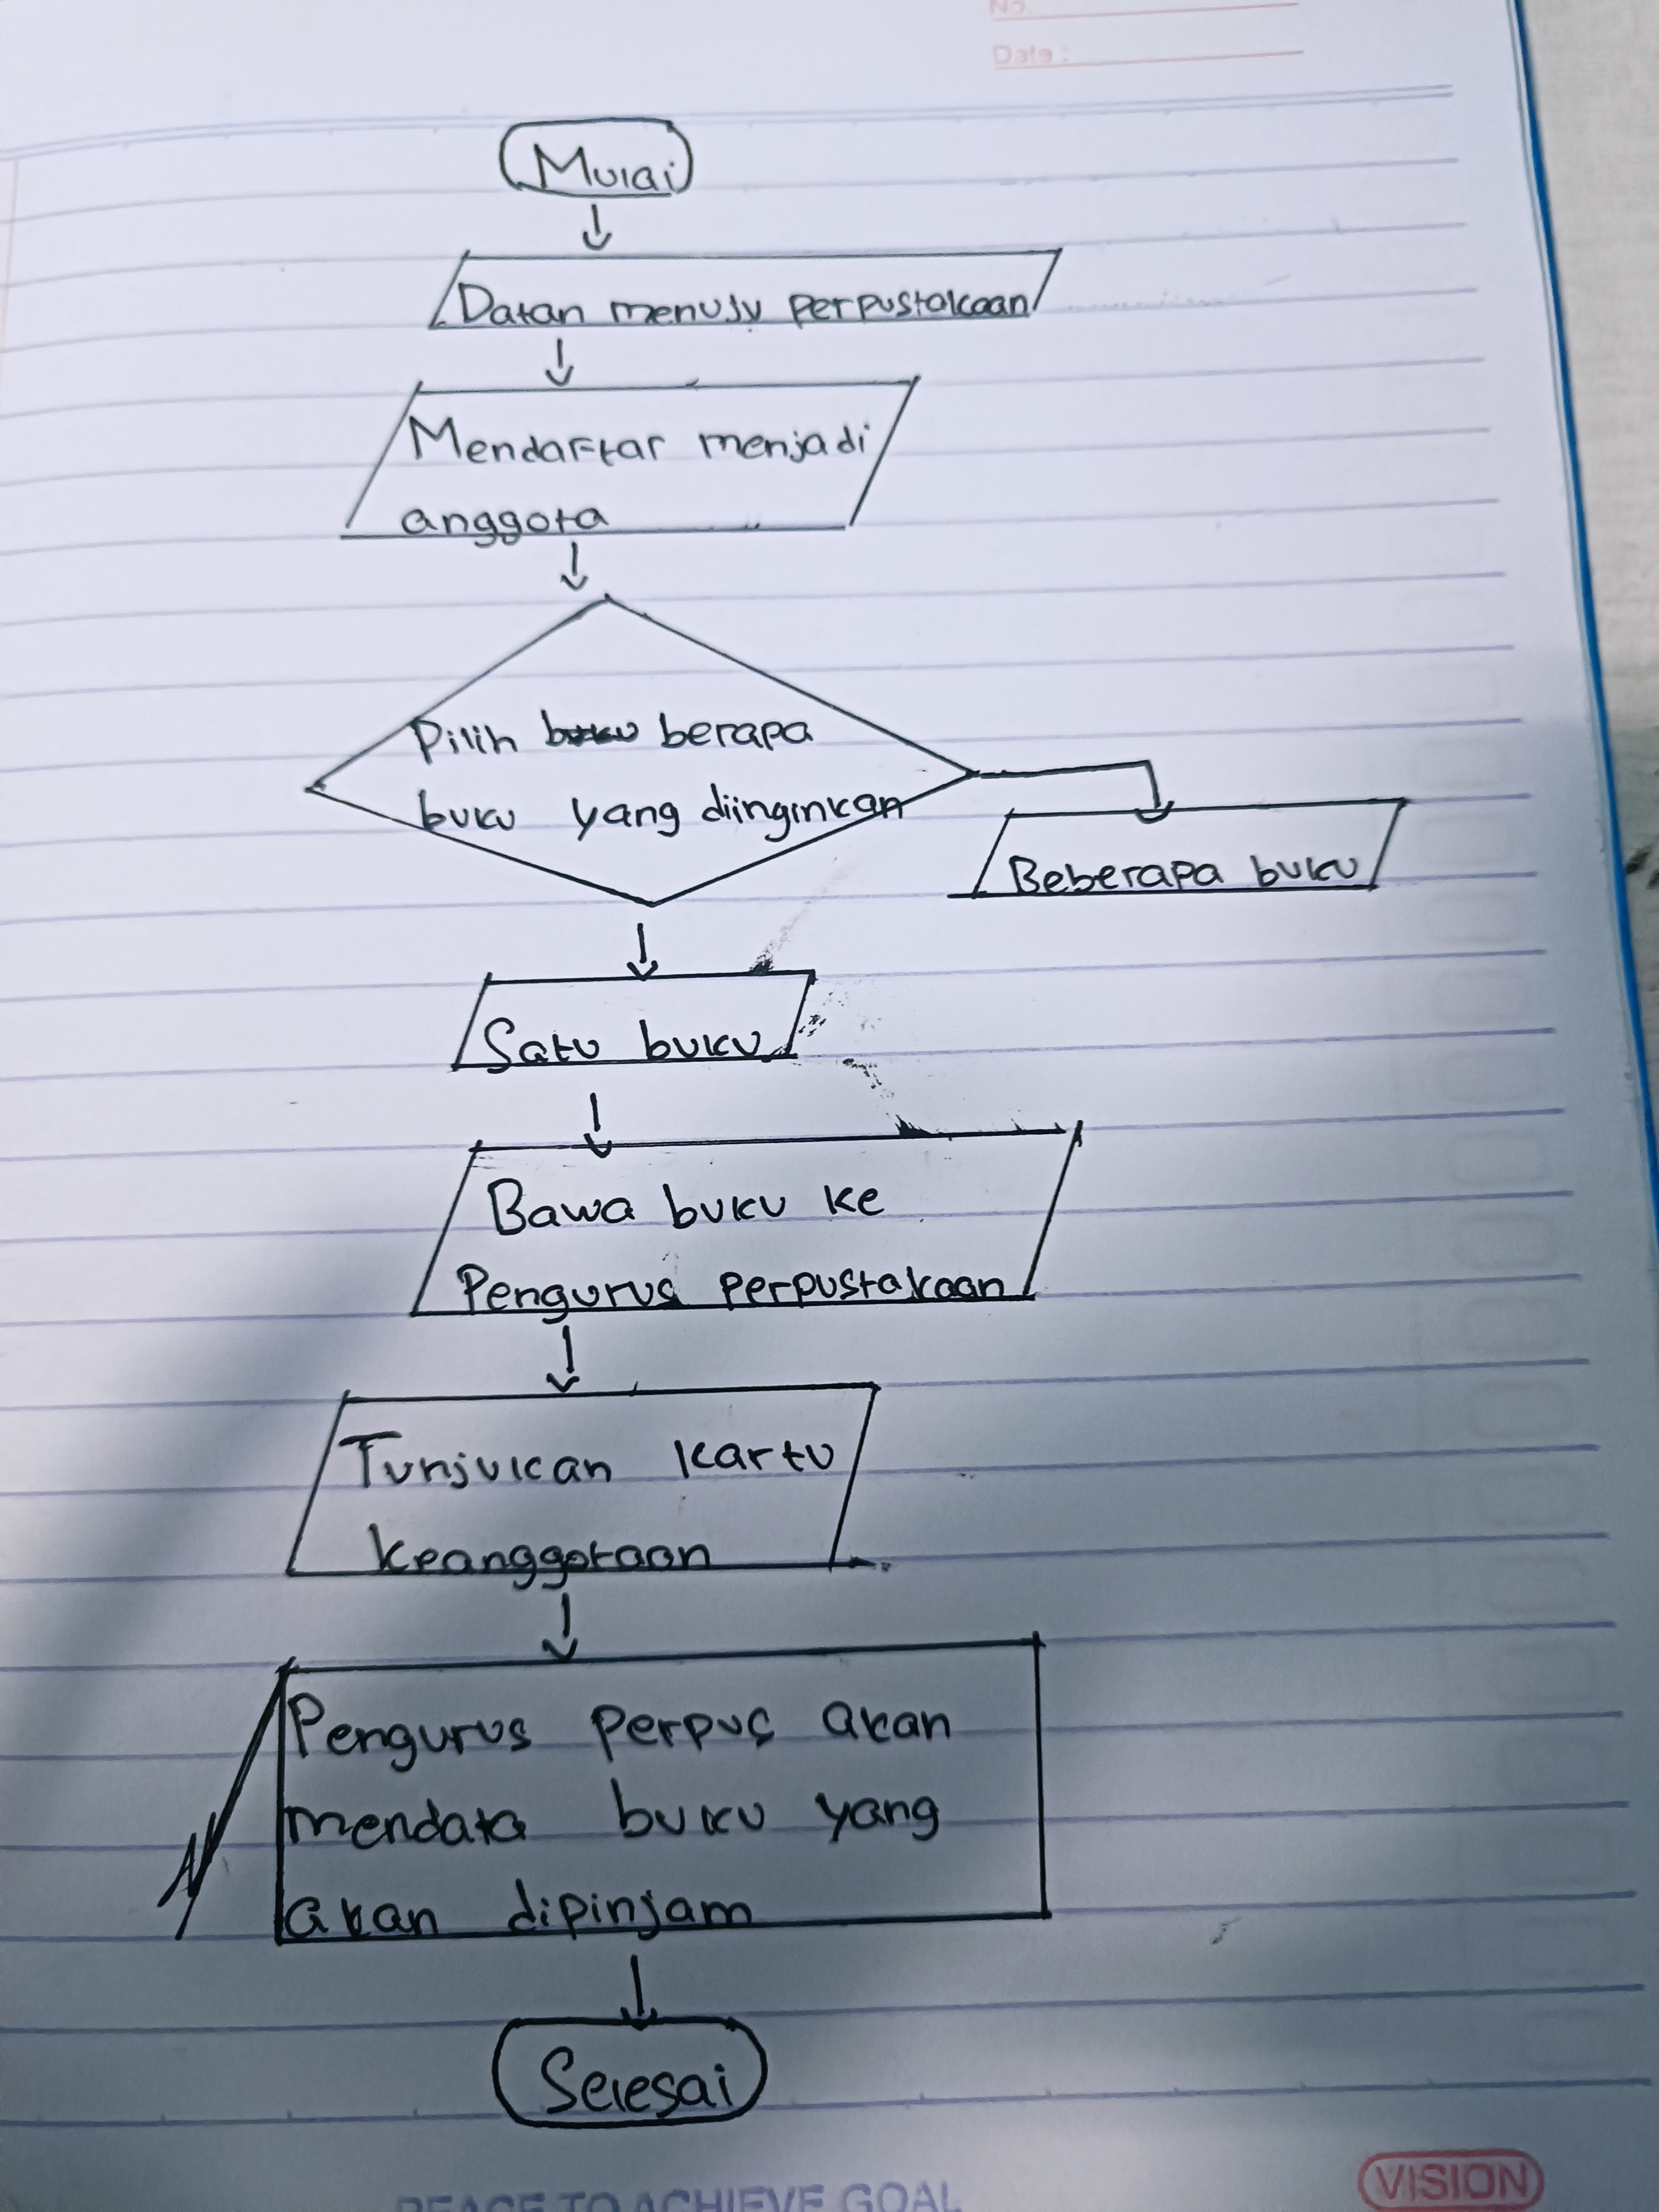 No.
Date :
Mulai
Datan menuju perpustakaan
Mendaftar menjadi
anggota
Pilih buku berapa
buku yang diinginkan
Beberapa buku
Satu buku
Bawa buku ke
Pengurus perpustakaan
Tunjukan kartu
keanggotaan
Pengurus perpus akan
mendata buku yang
akan dipinjam
Selesai
VISION
PEACE TO ACHIEVE GOAL